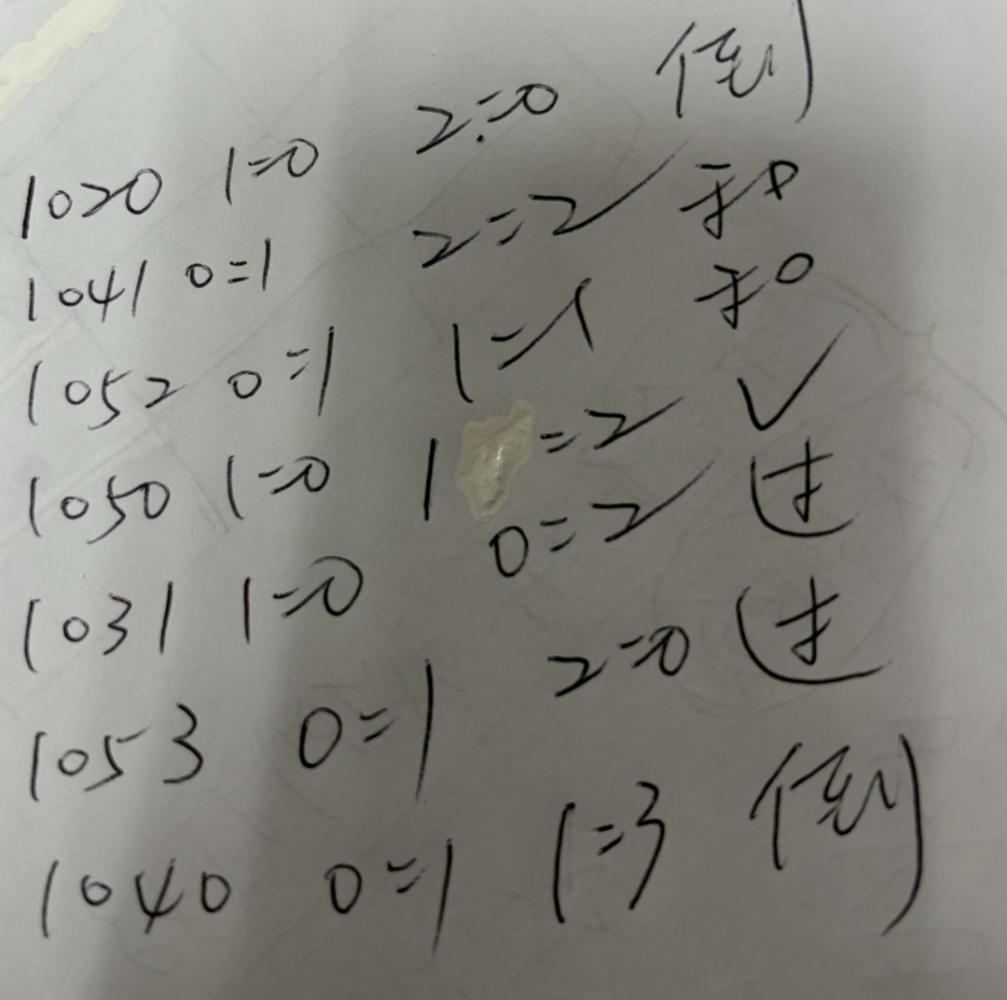 1020 1=0 2:=0 倒
1041 0=1 2=2 平
1052 0=1 1=1 平0
1050 1=0 1 =2 ✓
1031 1=0 0=2 过
1053 0=1 2=0 过
1040 0=1 1=3 倒